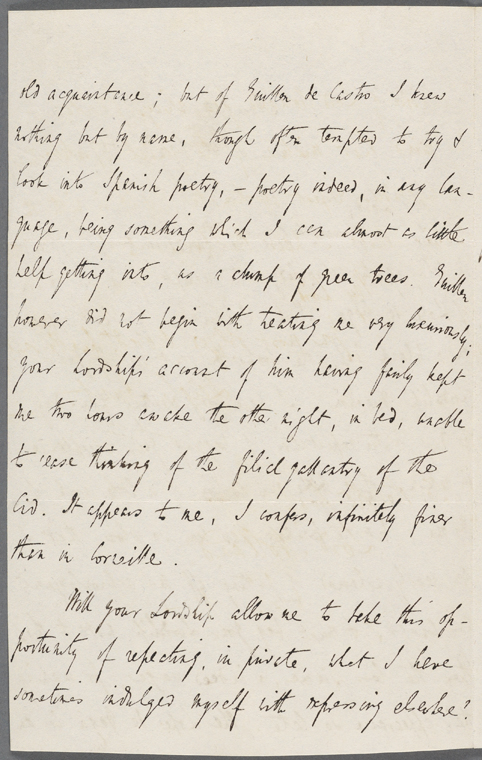 old acquaintance; but of Guillen de Castro I knew
nothing but by name, though often tempted to try &
look into Spanish poetry, – poetry indeed, in any lan-
guage, being something which I can almost as little
help getting into, as a clump of green trees. Guillen
however did not begin with treating me very luxuriously;
your Lordship's account of him having fairly kept
me two hours awake the other night, in bed, unable
to cease thinking of the filial gallantry of the
Cid. It appears to me, I confess, infinitely finer
than in Corneille.
Will your Lordship allow me to take this op-
portunity of repeating, in private, what I have
sometimes indulged myself with expressing elsewhere?